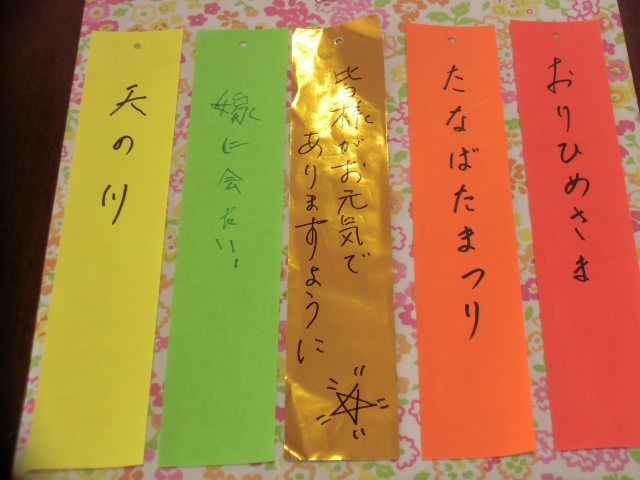 おりひめさま
たなばたまつり
皆様がお元気で
ありますように
嫁に会いたい!
天の川